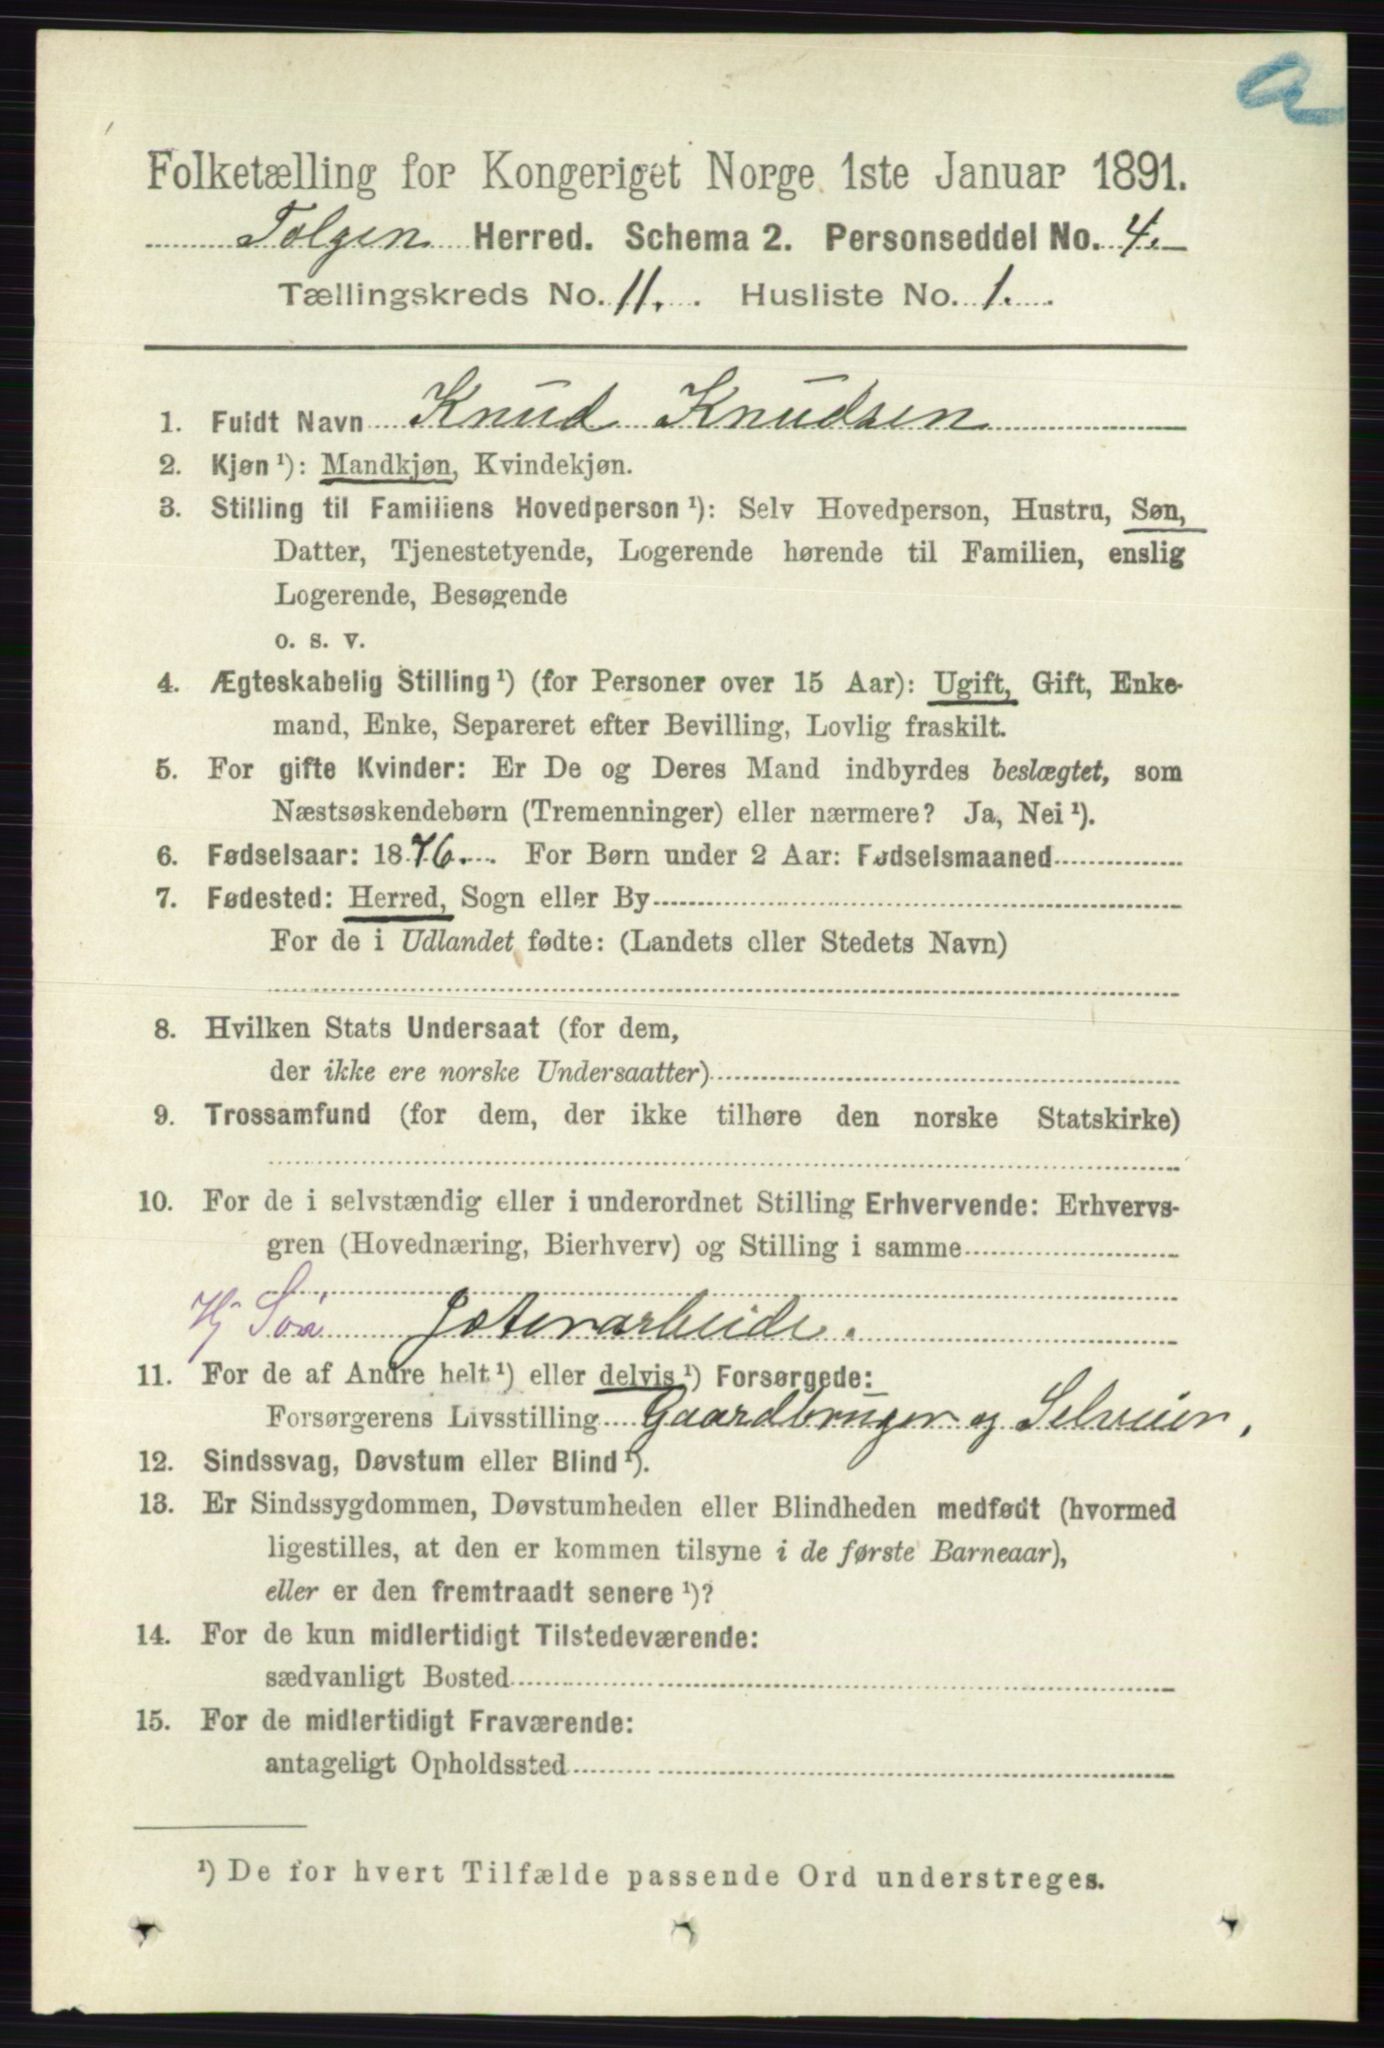 a
Folketælling for Kongeriget Norge 1ste Januar 1891.
Tolgen Herred. Schema 2. Personseddel No. 4.
Tællingskreds No. 11. Husliste No. 1.
1. Fuldt Navn Knud Knudsen
2. Kjøn ¹): Mandkjøn, Kvindekjøn.
3. Stilling til Familiens Hovedperson ¹): Selv Hovedperson, Hustru, Søn,
Datter, Tjenestetyende, Logerende hørende til Familien, enslig
Logerende, Besøgende
o. s. v.
4. Ægteskabelig Stilling ¹) (for Personer over 15 Aar): Ugift, Gift, Enke-
mand, Enke, Separeret efter Bevilling, Lovlig fraskilt.
5. For gifte Kvinder: Er De og Deres Mand indbyrdes beslægtet, som
Næstsøskendebørn (Tremenninger) eller nærmere? Ja, Nei ¹).
6. Fødselsaar: 1876. For Børn under 2 Aar: Fødselsmaaned
7. Fødested: Herred, Sogn eller By
For de i Udlandet fødte: (Landets eller Stedets Navn)
8. Hvilken Stats Undersaat (for dem,
der ikke ere norske Undersaatter)
9. Trossamfund (for dem, der ikke tilhøre den norske Statskirke)
10. For de i selvstændig eller i underordnet Stilling Erhvervende: Erhvervs-
gren (Hovednæring, Bierhverv) og Stilling i samme
Hj Søn Jøterarbeide.
11. For de af Andre helt ¹) eller delvis ¹) Forsørgede:
Forsørgerens Livsstilling Gaardbruger og Selveier,
12. Sindssvag, Døvstum eller Blind ¹).
13. Er Sindssygdommen, Døvstumheden eller Blindheden medfødt (hvormed
ligestilles, at den er kommen tilsyne i de første Barneaar),
eller er den fremtraadt senere ¹)?
14. For de kun midlertidigt Tilstedeværende:
sædvanligt Bosted
15. For de midlertidigt Fraværende:
antageligt Opholdssted
¹) De for hvert Tilfælde passende Ord understreges.